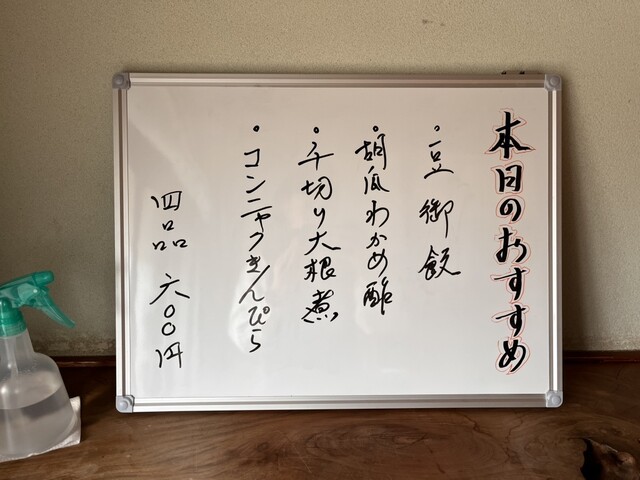 本日のおすすめ
・豆御飯
・胡瓜わかめ酢
・千切り大根煮
・コンニャクきんぴら
四品 六〇〇円